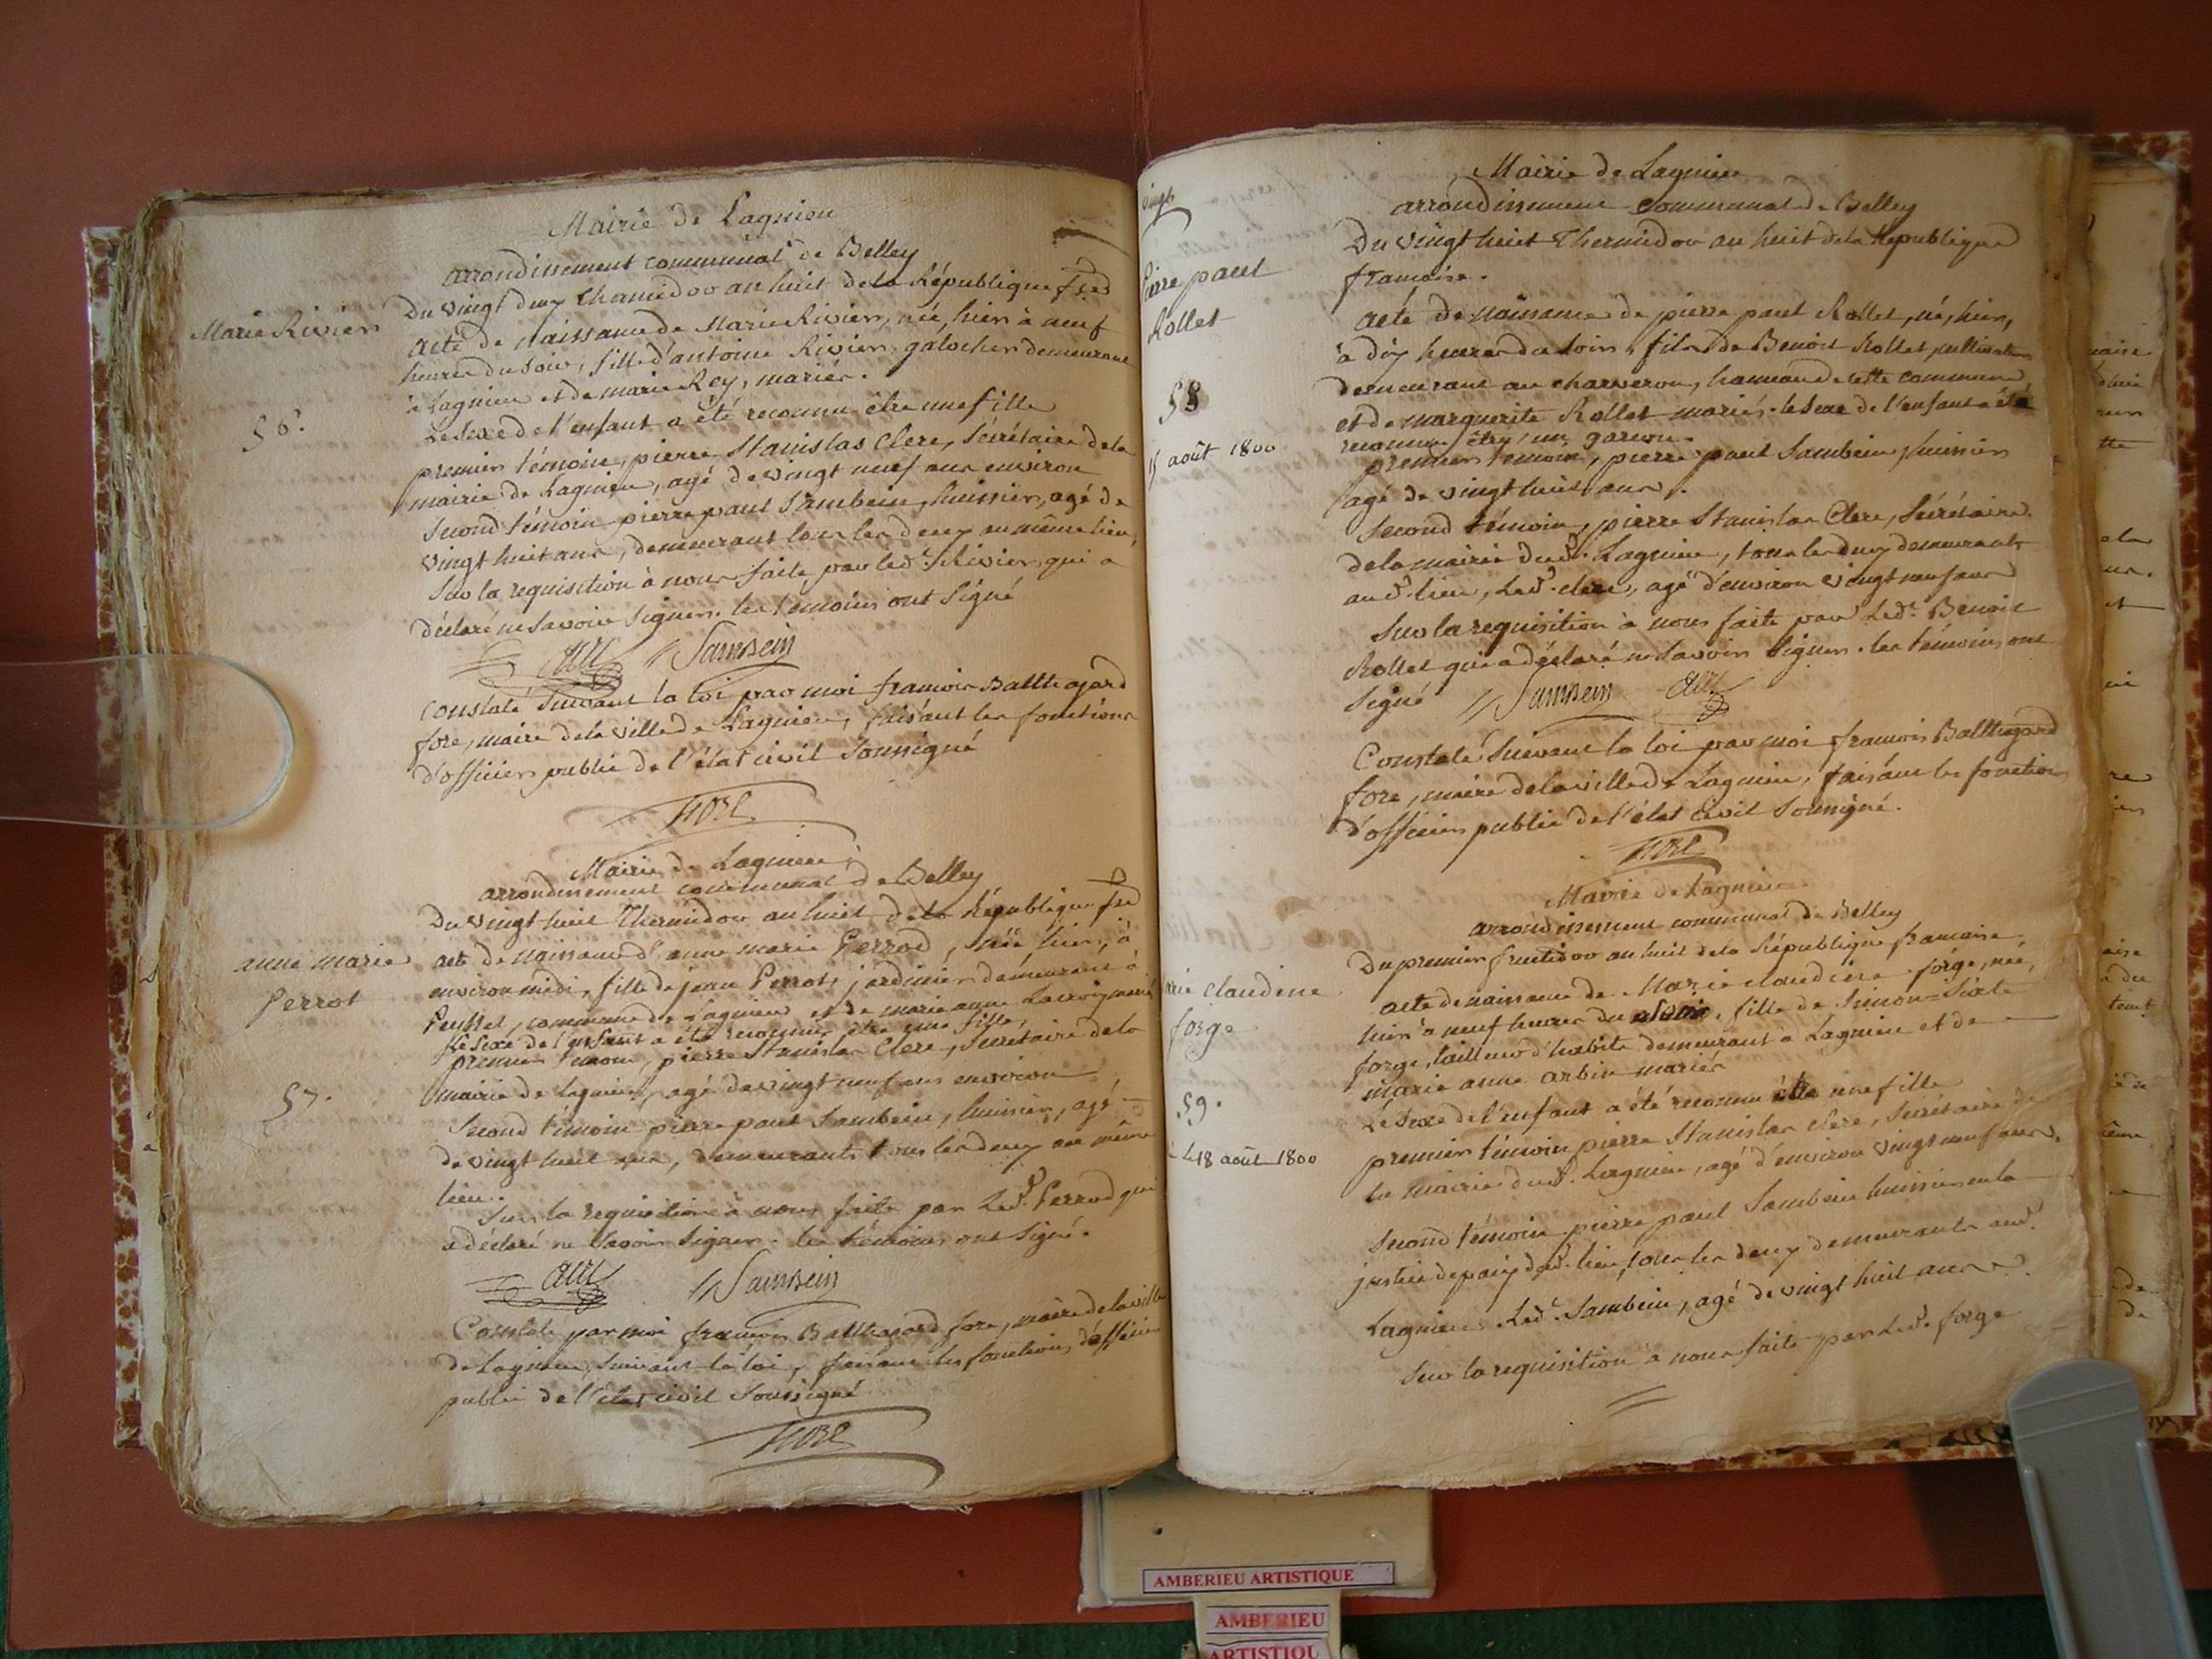 Mairie de Lagnieu
arrondissement communal de Belley
Marie Rivier
Du vingt deux Thermidor an huit de la République fse
acte de naissance de Marie Rivier, née, hier à neuf
heures du soir, fille d'antoine Rivier, galocher demeurant
à Lagnieu et de marie Rey, mariés.
56.
Le sexe de l'enfant a été reconnu être une fille
premier témoin, pierre Stanislas Clerc, Sécrétaire de la
mairie de Lagnieu, agé de vingt neuf ans environ
Second témoin pierre paul Sambein, huissier, agé de
vingt huit ans, demeurant tous les deux au même lieu,
Sur la requisition à nous faite par led. Rivier, qui a
déclaré ne Savoir Signer. les témoins ont Signé
Sambein
Constaté Suivant la loi par moi françois Balthazard
fore, maire de la ville de Lagnieu, faisant les fonctions
d'officier public de l'état civil Soussigné
FORE
Mairie de Lagnieu
arrondissement communal de Belley
Du vingt huit Thermidor an huit de la République fse
anne marie
Perrot
acte de naissance d'anne marie Perrod, née hier, à
environ midi, fille de jean Perrot, jardinier demeurant à
commune de Lagnieu et de marie anne Lacroix mariés
Le Sexe de l'enfant a été reconnu être une fille,
premier témoin, pierre Stanislas Clerc, Secretaire de la
57.
mairie de Lagnieu, agé de vingt neuf ans environ
Second témoin pierre paul Sambein, huissier, agé
de vingt huit ans, demeurants tous les deux au même
lieu.
Sur la requisition à nous faite par Led. Perrod qui
a déclaré ne Savoir Signer. les témoins ont Signé.
Sambein
Constaté par moi françois Balthazard fore, maire de la ville
de Lagnieu, Suivant la loi, faisant les fonctions d'officier
public de l'état civil Soussigné
FORE
vingt
Mairie de Lagnieu
arrondissement Communal de Belley
Du vingt huit Thermidor an huit de la République
française.
Pierre paul
Rollet
58
15 août 1800
acte de naissance de pierre paul Rollet, né, hier,
à dix heures du soir, fils de Benoit Rollet cultivateur
demeurant au charveron, hameau de cette commune
et de marguerite Rollet mariés. le sexe de l'enfant a été
reconnu être un garçon.
premier témoin, pierre paul Sambein, huissier
agé de vingt huit ans.
Second témoin, pierre Stanislas Clerc, Sécrétaire
de la mairie dud. Lagnieu, tous les deux demeurants
aud. lieu, Led. clerc, agé d'environ vingt neuf ans
Sur la requisition à nous faite par Led. Benoit
Rollet qui a déclaré ne Savoir Signer. les témoins ont
Signé Sambein
Constaté Suivant la loi par moi françois Balthazard
fore, maire de la ville de Lagnieu, faisant les fonctions
d'officier public de l'état civil Soussigné.
FORE
Mairie de Lagnieu
arrondissement communal de Belley
Du premier fructidor an huit de la République francaise
rie claudine
forge
59.
le 18 août 1800
acte de naissance de Marie claudine forge, née,
hier à neuf heures du soir, fille de Simon=Sixte
forge, tailleur d'habits demeurant à Lagnieu et de
marie anne arbin mariés
Le Sexe de l'enfant a été reconnu être une fille
premier témoin pierre Stanislas clerc, Sécrétaire de
la mairie dud. Lagnieu, agé d'environ vingt neuf ans,
Second témoin pierre paul Sambein huissier en la
justice de paix dud. lieu, tous les deux demeurants aud.
Lagnieu. Led. Sambein, agé de vingt huit ans
Sur la requisition à nous faite par Led. forge
AMBERIEU ARTISTIQUE
AMBERIEU
ARTISTIQU